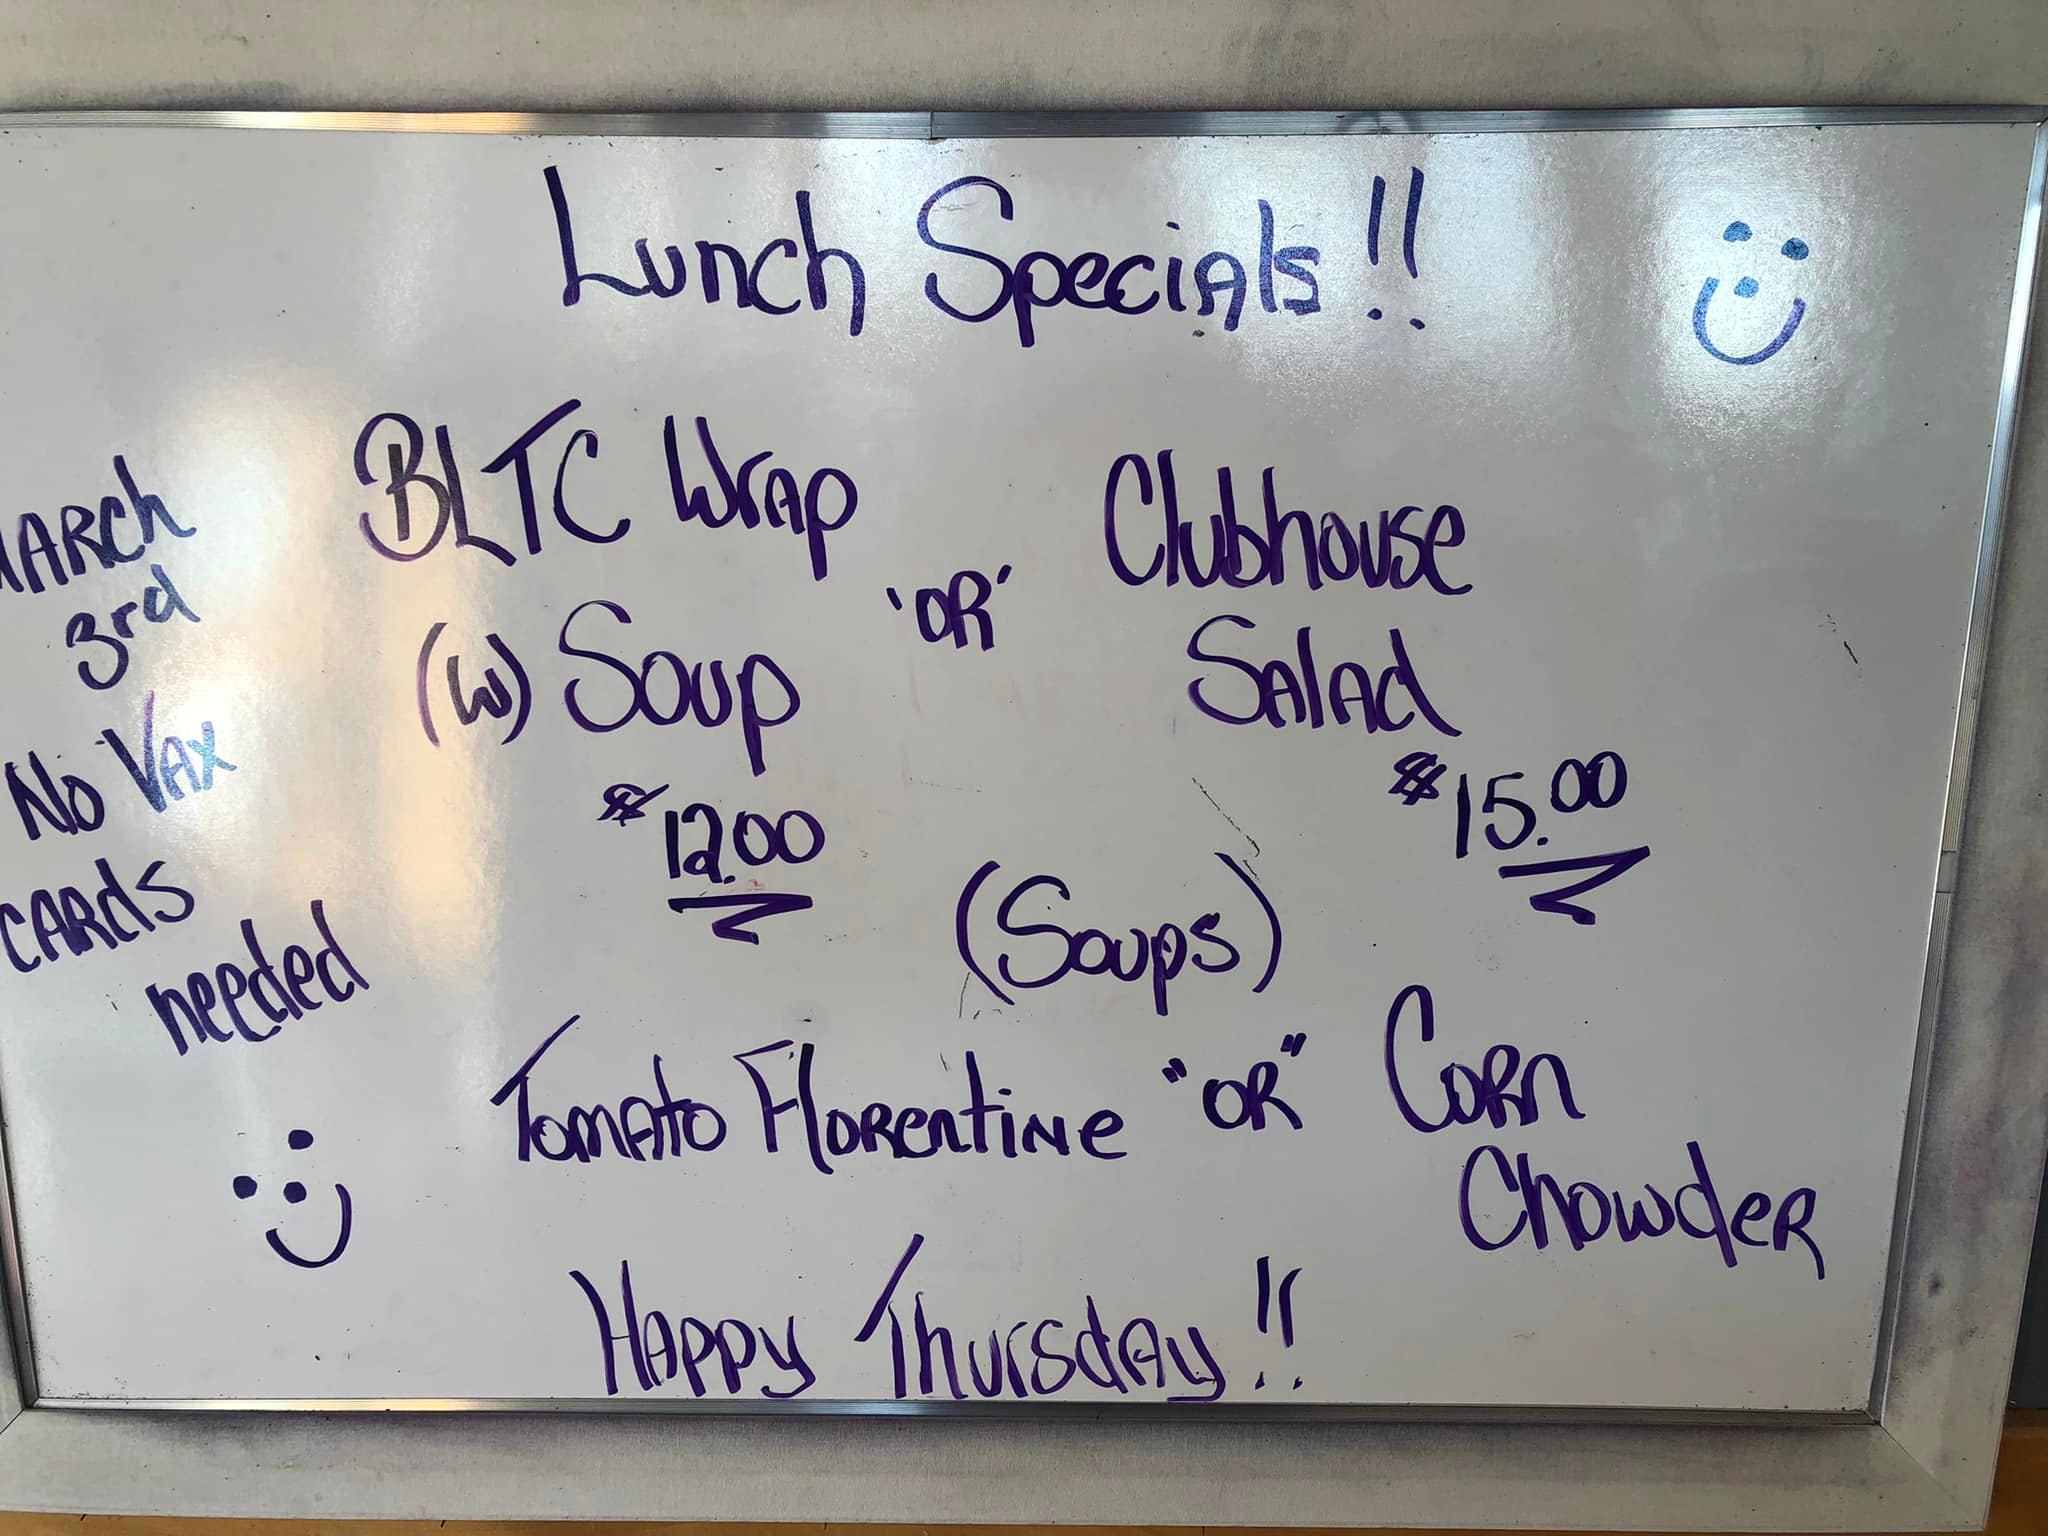 Lunch Specials!!
BLTC Wrap
(W) Soup
$12.00
'OR'
Clubhouse
Salad
$15.00
March
3rd
No Vax
cards
needed
(Soups)
Tomato Florentine "OR" Corn
Chowder
Happy Thursday!!